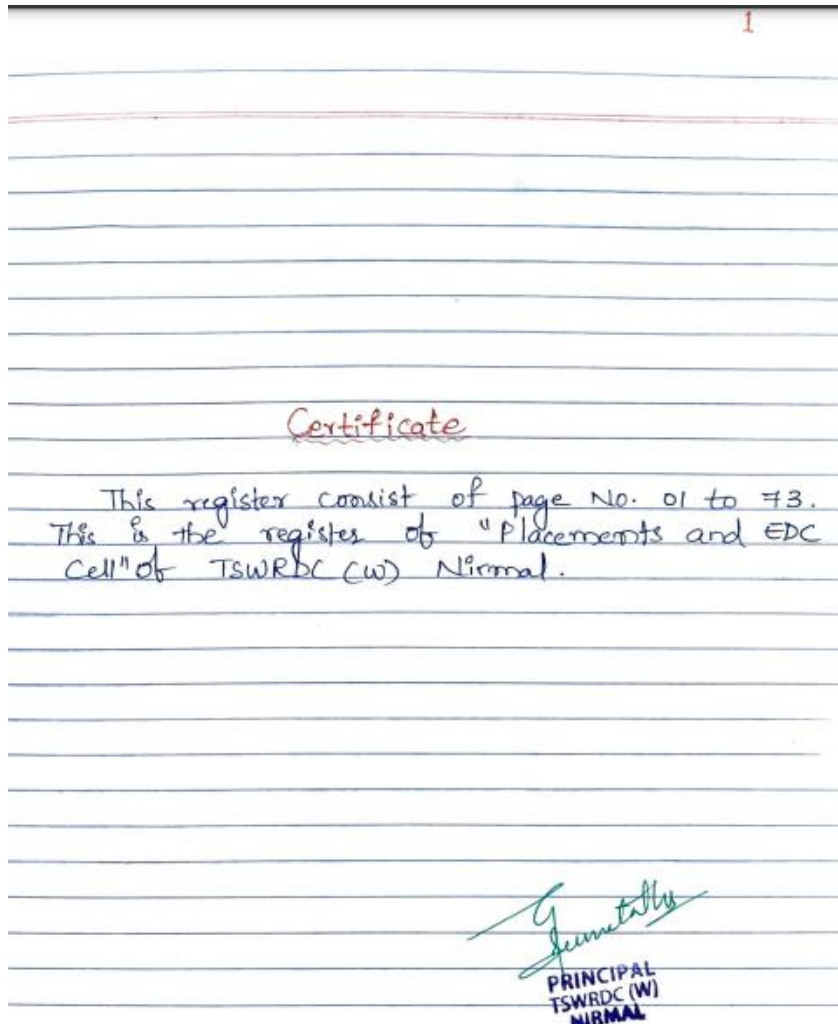 1
Certificate
This register consist of page No. 01 to 73.
This is the register of "Placements and EDC
Cell" of TSWRDC (W) Nirmal.
PRINCIPAL
TSWRDC (W)
NIRMAL